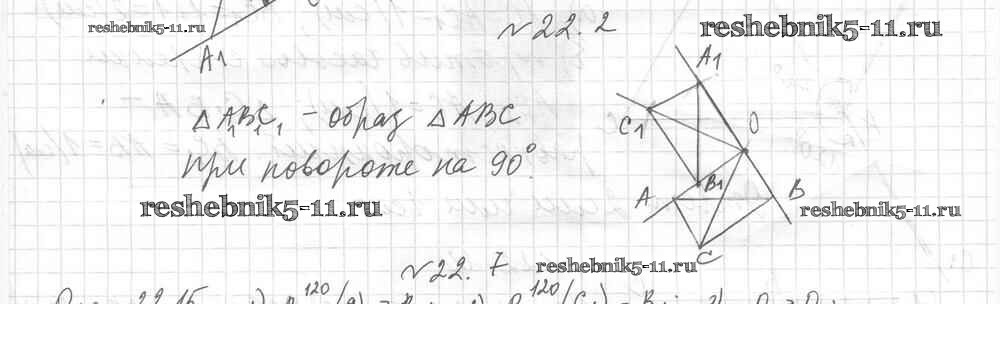 reshebnik5-11.ru
A1
№22.2
reshebnik5-11.ru
A1
C1
O
B1
A
B
C
△A₁B₁C₁ - образ △ABC
при повороте на 90°.
reshebnik5-11.ru
reshebnik5-11.ru
№22.7
reshebnik5-11.ru